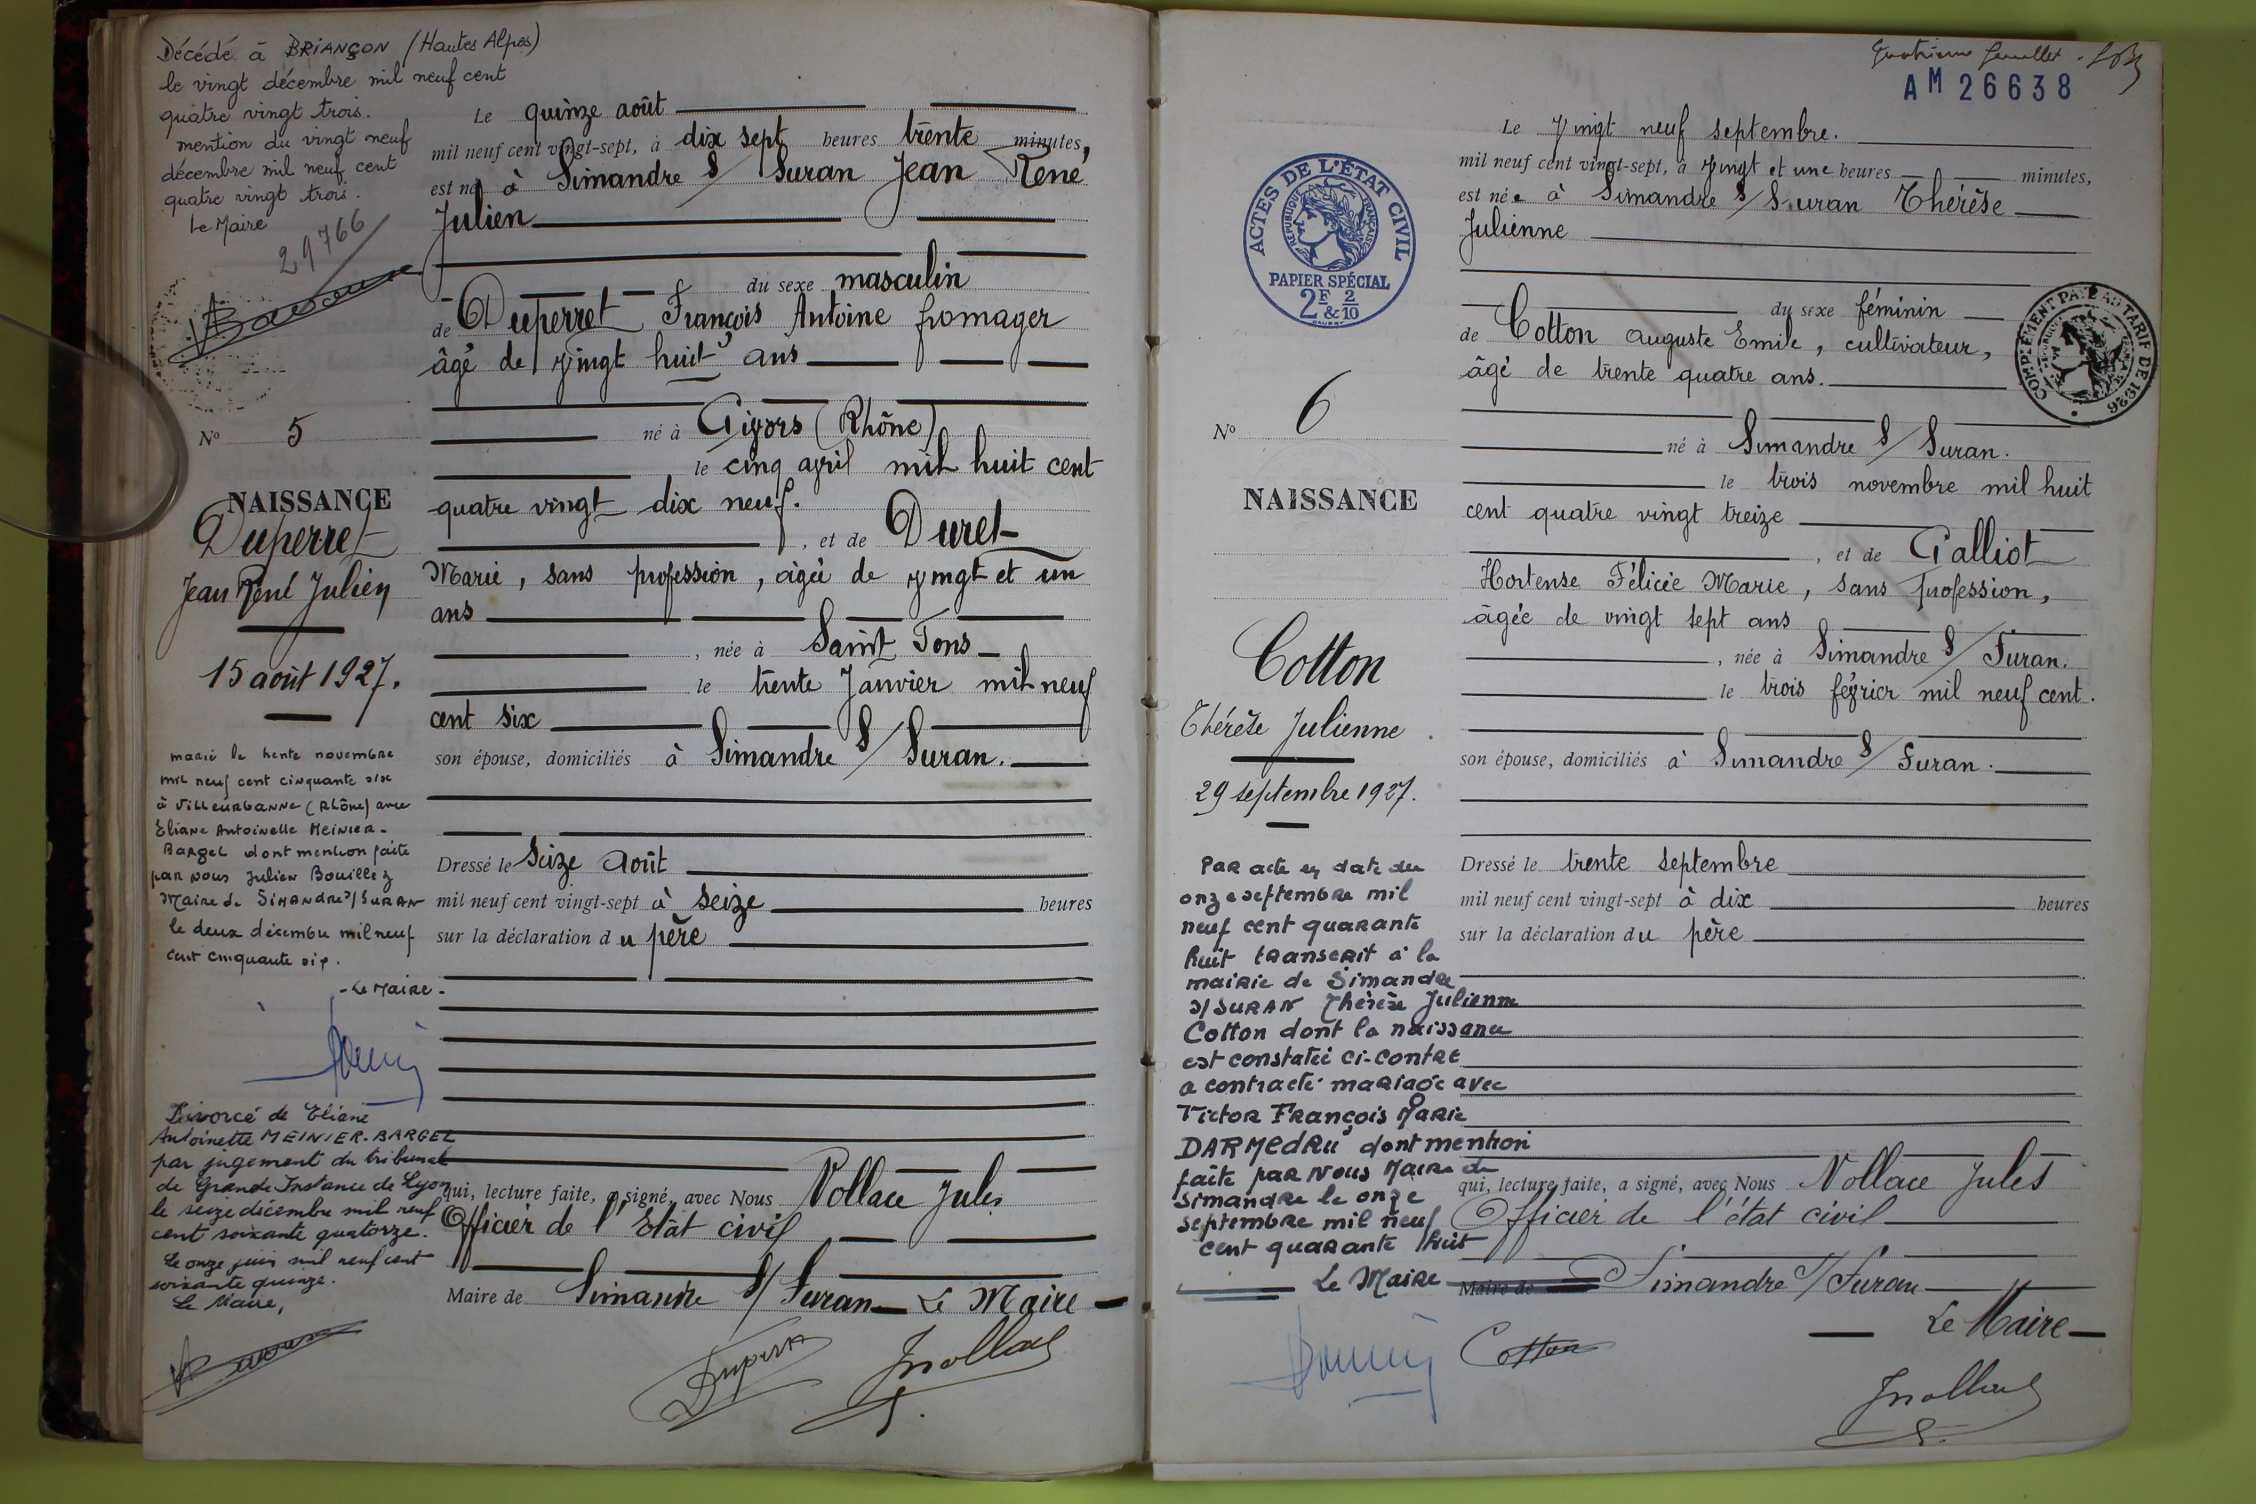 Décédé à BRIANÇON (Hautes Alpes)
le vingt décembre mil neuf cent
quatre vingt trois.
mention du vingt neuf
décembre mil neuf cent
quatre vingt trois.
Le Maire
29766
N° 5
NAISSANCE
Duperret
Jean René Julien
15 août 1927.
marié le trente novembre
mil neuf cent cinquante six
à Villeurbanne (Rhône) avec
Eliane Antoinette Meinier-
Bargel dont mention faite
par nous Julien Bouillez
Maire de SIMANDRE s/ SURAN
le deux décembre mil neuf
cent cinquante six.
- Le Maire -
Divorcé de Eliane
Antoinette MEINIER-BARGEL
par jugement du tribunal
de Grande Instance de Lyon
le seize décembre mil neuf
cent soixante quatorze.
Le onze juin mil neuf cent
soixante quinze.
Le Maire,
Le quinze août
mil neuf cent vingt-sept, à dix sept heures trente minutes,
est né à Simandre s/ Suran Jean René
Julien
du sexe masculin
de Duperret François Antoine fromager
âgé de vingt huit ans
né à Givors (Rhône)
le cinq avril mil huit cent
quatre vingt dix neuf.
, et de Duret
Marie, sans profession, âgée de vingt et un
ans
, née à Saint Fons
le trente Janvier mil neuf
cent six
son épouse, domiciliés à Simandre s/ Suran.
Dressé le seize août
mil neuf cent vingt-sept à seize heures
sur la déclaration du père
qui, lecture faite, a signé, avec Nous Nollace Jules
Officier de l'Etat civil
Maire de Simandre s/ Suran Le Maire
Duperret
JNollace
Quatrième feuillet
AM 26638
ACTES DE L'ÉTAT CIVIL
RÉPUBLIQUE FRANÇAISE
PAPIER SPÉCIAL
2F & 2/10
COMPLÉMENT PAYÉ AU TARIF DE 1926
N° 6
NAISSANCE
Cotton
Thérèse Julienne
29 septembre 1927.
Par acte en date du
onze septembre mil
neuf cent quarante
huit transcrit à la
mairie de Simandre
s/ SURAN Thérèse Julienne
Cotton dont la naissance
est constatée ci-contre
a contracté mariage avec
Victor François Marie
DARMEDRU dont mention
faite par Nous Maire de
Simandre le onze
septembre mil neuf
cent quarante huit
Le Maire
Le vingt neuf septembre.
mil neuf cent vingt-sept, à vingt et une heures minutes,
est née à Simandre s/ Suran Thérèse
Julienne
du sexe féminin
de Cotton Auguste Emile, cultivateur,
âgé de trente quatre ans.
né à Simandre s/ Suran.
le trois novembre mil huit
cent quatre vingt treize
, et de Galliot
Hortense Félicie Marie, sans profession,
âgée de vingt sept ans
, née à Simandre s/ Suran.
le trois février mil neuf cent.
son épouse, domiciliés à Simandre s/ Suran.
Dressé le trente septembre
mil neuf cent vingt-sept à dix heures
sur la déclaration du père
qui, lecture faite, a signé, avec Nous Nollace Jules
Officier de l'état civil
Maire de Simandre s/ Suran
Le Maire
Cotton
JNollace